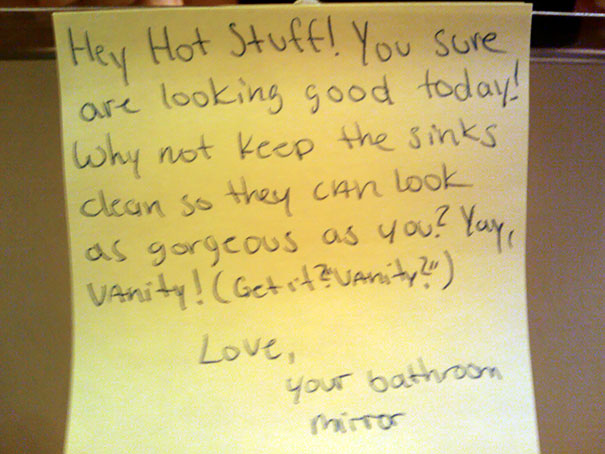 Hey Hot Stuff! You sure
are looking good today!
Why not keep the sinks
clean so they can look
as gorgeous as you? Yay,
vanity! (Get it? "vanity?")
Love,
your bathroom
mirror